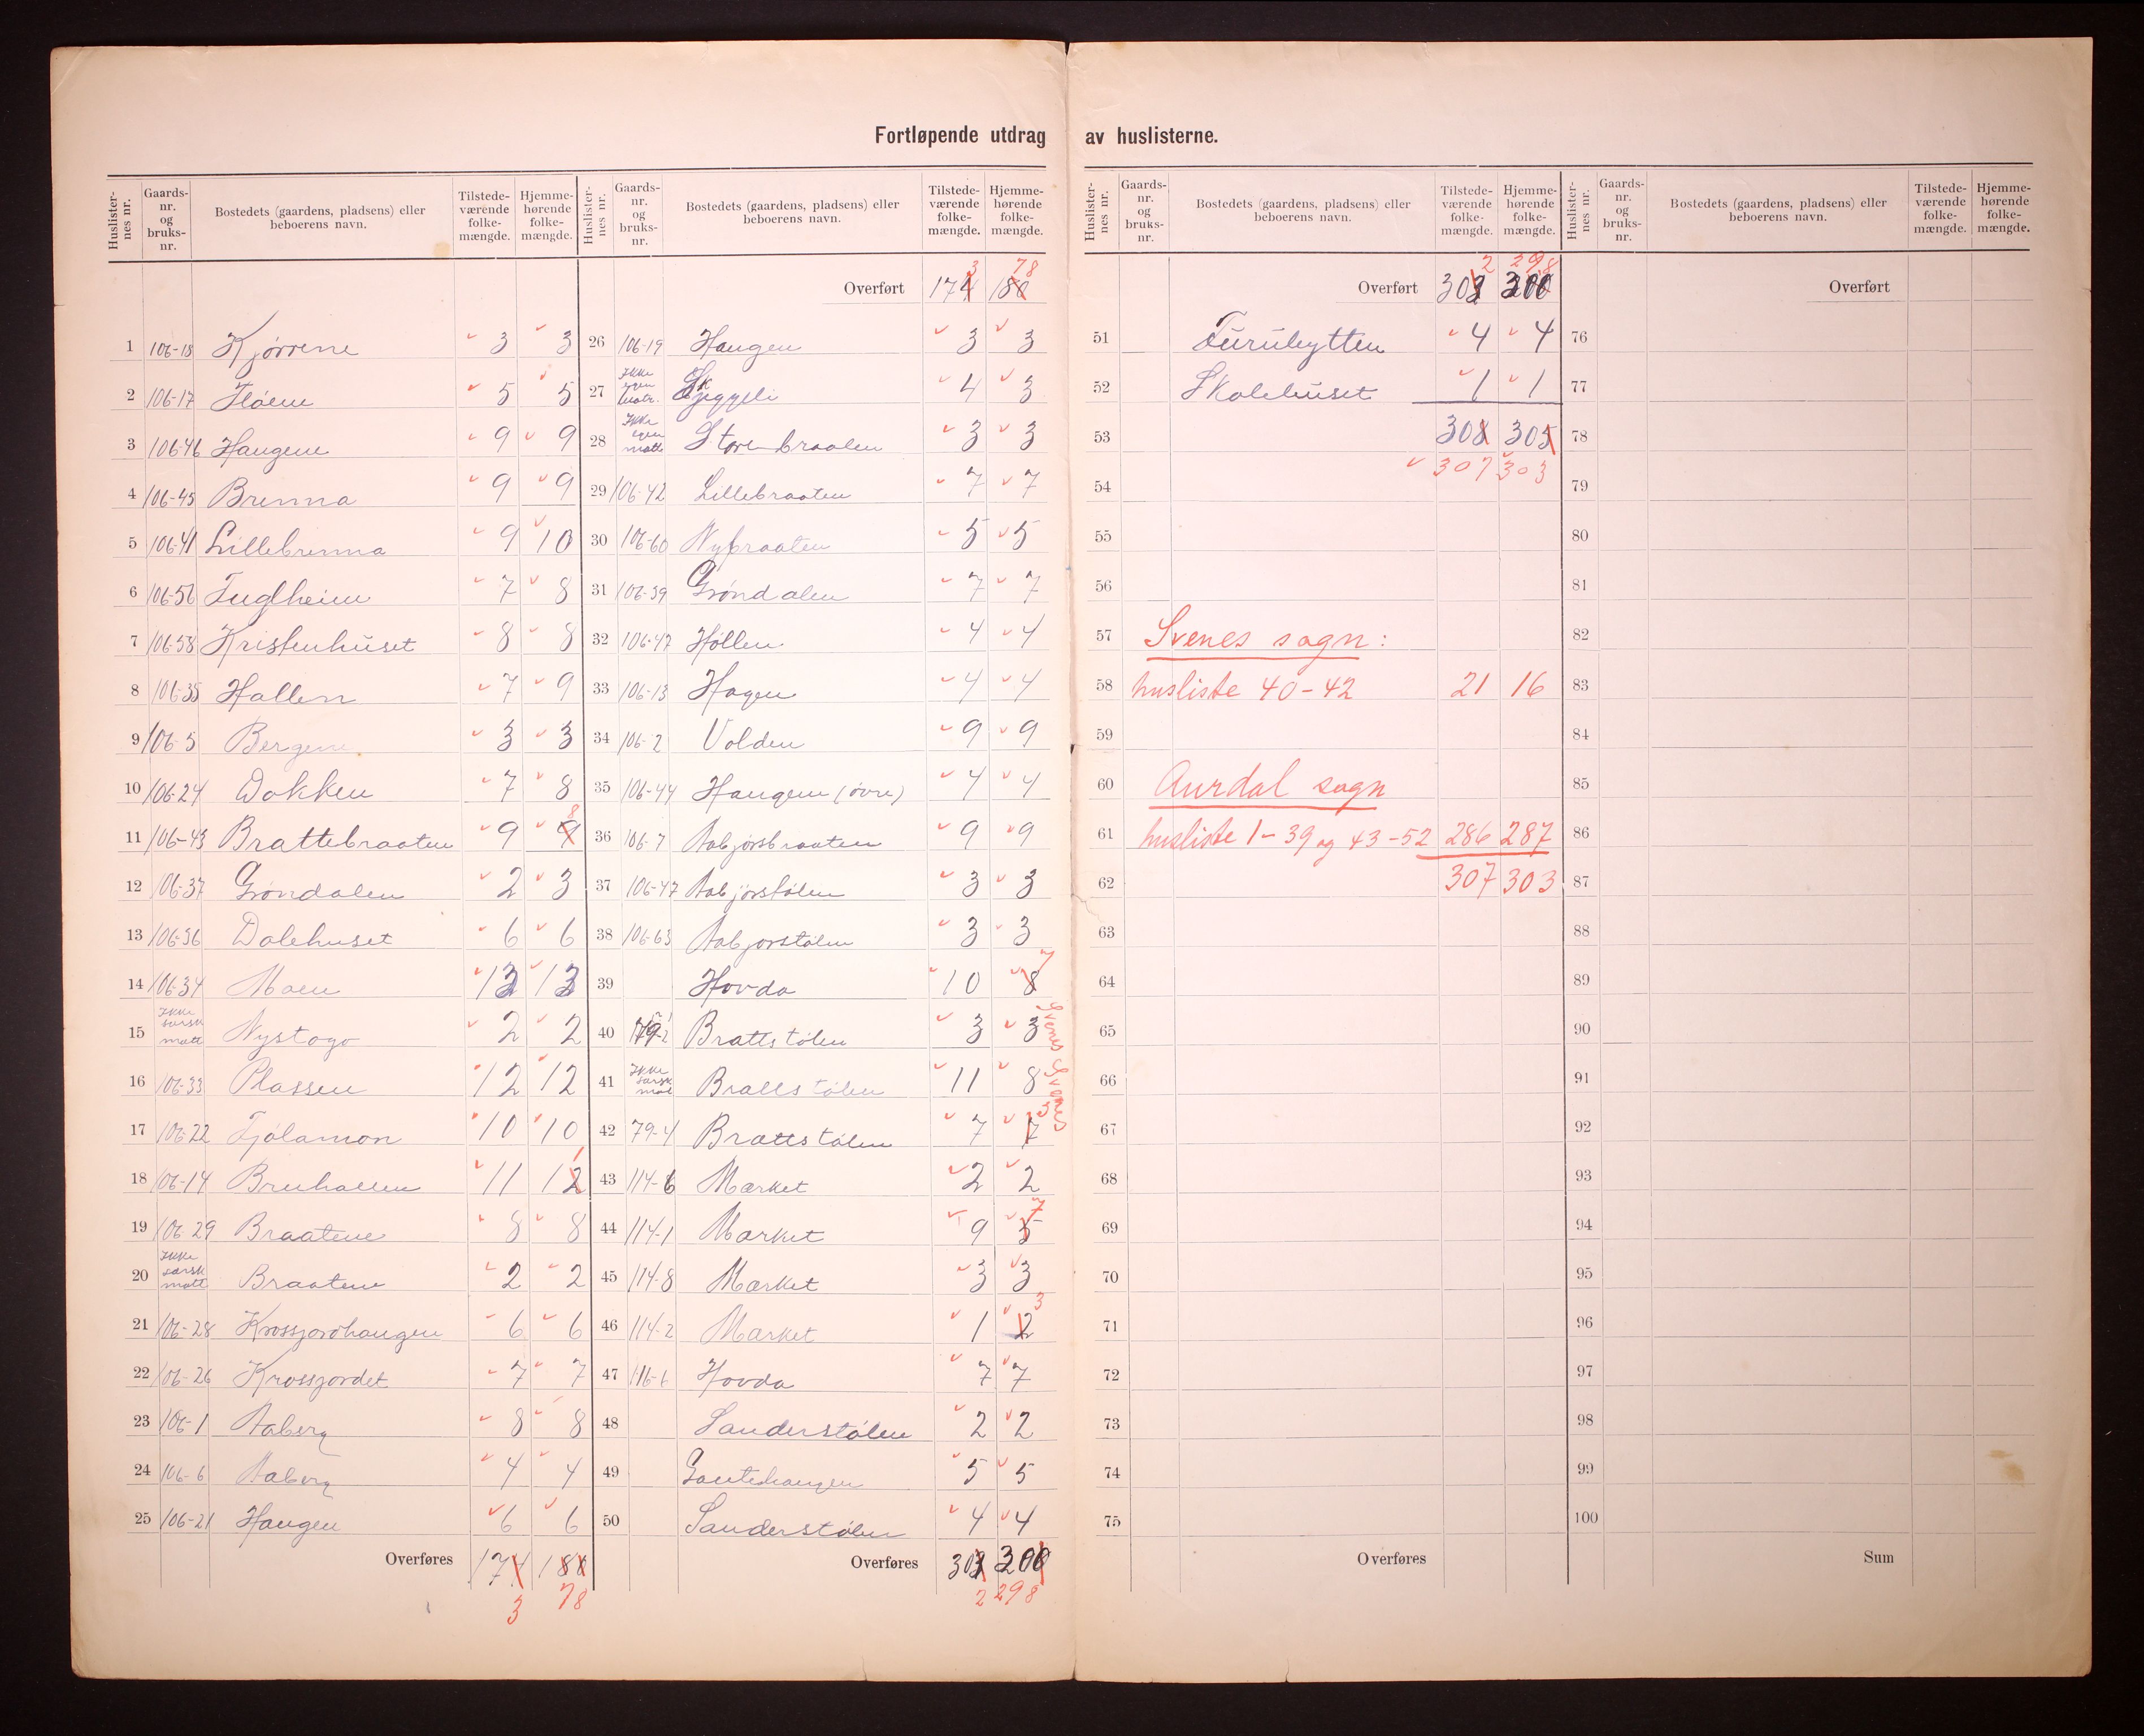 Fortløpende utdrag av huslisterne.
Huslister-nes nr. Gaards-nr. og bruks-nr. Bostedets (gaardens, pladsens) eller beboerens navn. Tilstede-værende folke-mængde. Hjemme-hørende folke-mængde.
1 106-18 Kjørrene 3 3
2 106-17 Fløem 5 5
3 106-46 Haugene 9 9
4 106-45 Brenna 9 9
5 106-41 Lillebrenna 9 10
6 106-56 Fuglheim 7 8
7 106-58 Kristenhuset 8 8
8 106-35 Hallen 7 9
9 106-5 Bergene 3 3
10 106-24 Dokken 7 8
11 106-43 Brattebraaten 9 9 8
12 106-37 Grøndalen 2 3
13 106-36 Dalehuset 6 6
14 106-34 Moen 13 13
15 Ikke særsk matr Nystogo 2 2
16 106-33 Plassen 12 12
17 106-22 Fjølamon 10 10
18 106-14 Bruhallen 11 12 1
19 106-29 Braatene 8 8
20 Ikke særsk matr Braaten 2 2
21 106-28 Krossjordhaugen 6 6
22 106-26 Krossjordet 7 7
23 106-1 Aaberg 8 8
24 106-6 Aaberg 4 4
25 106-21 Haugen 6 6
Overføres 174 180
3 78
Huslister-nes nr. Gaards-nr. og bruks-nr. Bostedets (gaardens, pladsens) eller beboerens navn. Tilstede-værende folke-mængde. Hjemme-hørende folke-mængde.
3 78
Overført 174 180
26 106-19 Haugen 3 3
27 Ikke egen matr. Skjeggeli 4 3
28 Ikke egen matr Storebraaten 3 3
29 106-42 Lillebraaten 7 7
30 106-60 Nybraaten 5 5
31 106-39 Grøndalen 7 7
32 106-47 Høllen 4 4
33 106-13 Hagen 4 4
34 106-2 Volden 9 9
35 106-44 Haugen (øvre) 4 4
36 106-7 Aabjørsbraaten 9 9
37 106-47 Aabjørstølen 3 3
38 106-63 Aabjorstølen 3 3
39 Hovda 10 8 7
40 79-2 Brattstølen 3 3 Svenes
41 Ikke særsk mat Brattstølen 11 8 Svenes
42 79-4 Brattstølen 7 7 5
43 114-6 Mærket 2 2
44 114-1 Mærket 9 5 7
45 114-8 Mærket 3 3
46 114-2 Mærket 1 2 3
47 116-1 Hovda 7 7
48 Sanderstølen 2 2
49 Gautehaugen 5 5
50 Sanderstølen 4 4
Overføres 303 300
2 298
Huslister-nes nr. Gaards-nr. og bruks-nr. Bostedets (gaardens, pladsens) eller beboerens navn. Tilstede-værende folke-mængde. Hjemme-hørende folke-mængde.
2 298
Overført 303 300
51 Furuhytten 4 4
52 Skolehuset 1 1
53 308 305
307 303
54
55
56
57 Svenes sogn:
58 husliste 40-42 21 16
59
60 Aurdal sogn
61 husliste 1-39 og 43-52 286 287
62 307 303
63
64
65
66
67
68
69
70
71
72
73
74
75
Overføres
Huslister-nes nr. Gaards-nr. og bruks-nr. Bostedets (gaardens, pladsens) eller beboerens navn. Tilstede-værende folke-mængde. Hjemme-hørende folke-mængde.
Overført
76
77
78
79
80
81
82
83
84
85
86
87
88
89
90
91
92
93
94
95
96
97
98
99
100
Sum